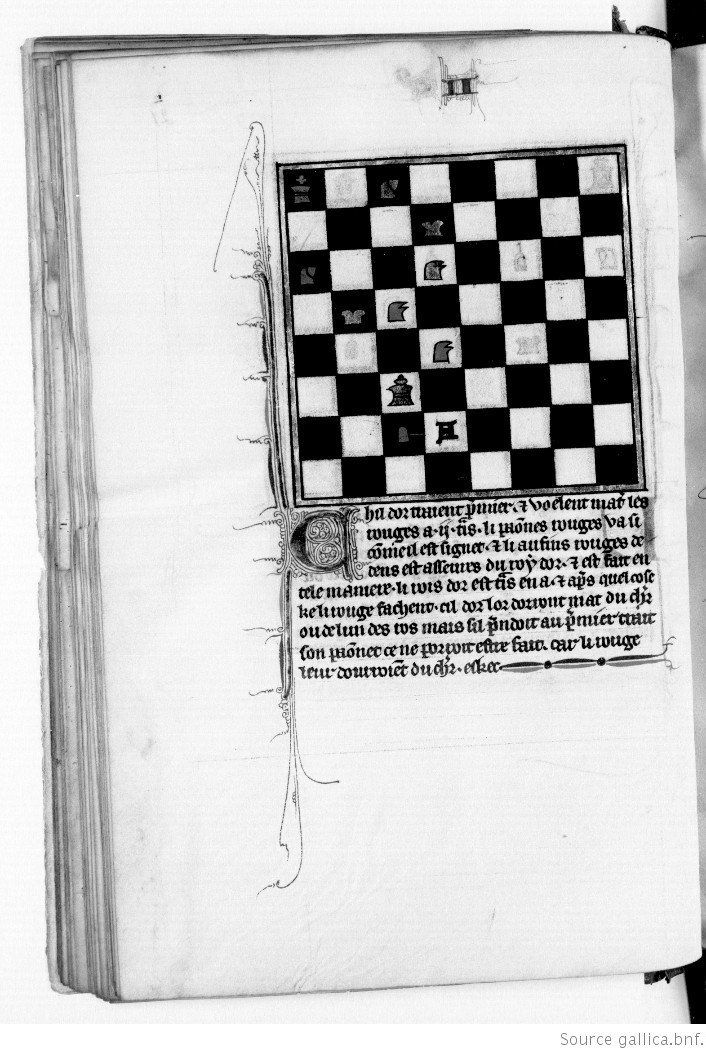 Chil dor traient p̄mier · ⁊ voelent mat̄ les
rouges a · ij · t̄is · li paones rouges va si
cōme il est signet · ⁊ li aufins rouges de
dens est asseures du roy dor · ⁊ est fait en
tele maniere · li rois dor est t̄is en a · ⁊ ap̄s quel cose
ke li rouge fachent · cil dor lor dorront mat du ch̄r
ou de lun des ros mais sil p̄ndoit au p̄mier trait
son paonet ce ne porroit estre fait · car li rouge
leur douroiēt du ch̄r · eskec
Source gallica.bnf.